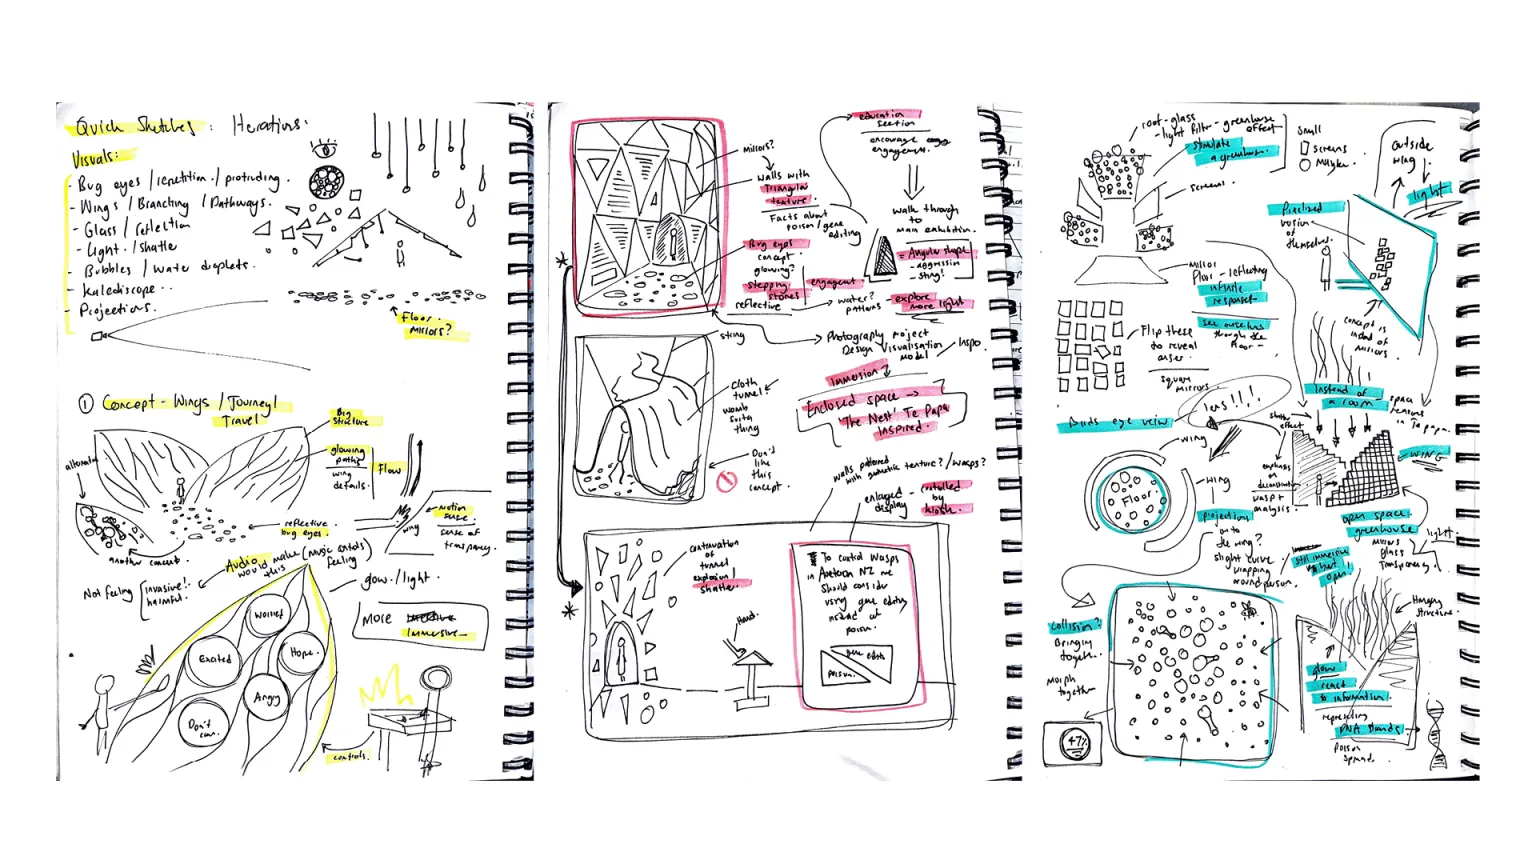 Quick Sketches: Iterations:
Visuals:
- Bug eyes / repetition / protruding.
- Wings / Branching / Pathways.
- Glass / reflection
- Light / shatter
- Bubbles / water droplets.
- Kaleidiscope ..
- Projections.
Floor
mirrors?
① Concept - Wings / Journey /
Travel
Big
structure
alternate
glowing
paths
wing
details.
Flow
reflective
bug eyes.
wing
motion
sense of
another concept.
Audio
would make
this
(music
feeling
Not feeling
invasive!.
harmful.
glow / light.
More
immersive
Worried
Excited
Hope.
Angry
Don't
care.
controls.
education
section
encourage
engagement.
Mirrors?
walls with
Triangular
texture.
Facts about
poison / gene
editing
walk through
to
main exhibition.
= Angular shape
- aggression
- sting!
Bug eyes
concept
glowing?
stepping
stones
reflective
engagement
water?
patterns
explore
more light
Photography project
Design Visualisation
model
/ Inspo
string
Immersion
Enclosed space →
'The Nest' Te Papa
Inspired.
Cloth
tunnel?
womb
sorta
thing
Don't
like
this
concept.
walls patterned
with geometric texture? / wasps?
enlarged
display
- controlled
by
kiosk.
continuation
of
tunnel
explosion /
shatter
Hand.
To control Wasps
in Aotearoa NZ we
should consider
using gene editing
instead of
poison.
gene edit
poison.
roof - glass
- light filter - greenhouse
effect
stimulate
a greenhouse.
Small
screens
screens.
outside
wing
light
Pixelized
version
of
themselves.
mirror
floor - reflecting
infinite
responses
see ourselves
through the
floor -
concept is
instead of
mirrors
Flip these
to reveal
answer.
square
mirrors.
lens!!!
Instead of
a room
space
in Te papa.
Birds eye view
wing
shatter
effect
Floor
wing
emphasis
on
wasp +
analysis
WING
projections
onto
the wing?
slight curve
wrapping
around person.
open space
greenhouse
mirrors
glass
transparency
light
still immersive
but
open
Hanging
structure.
Collision?
Bringing
together.
morph
together
47%
glow
react
to information.
representing
DNA strands
poison
spreads.